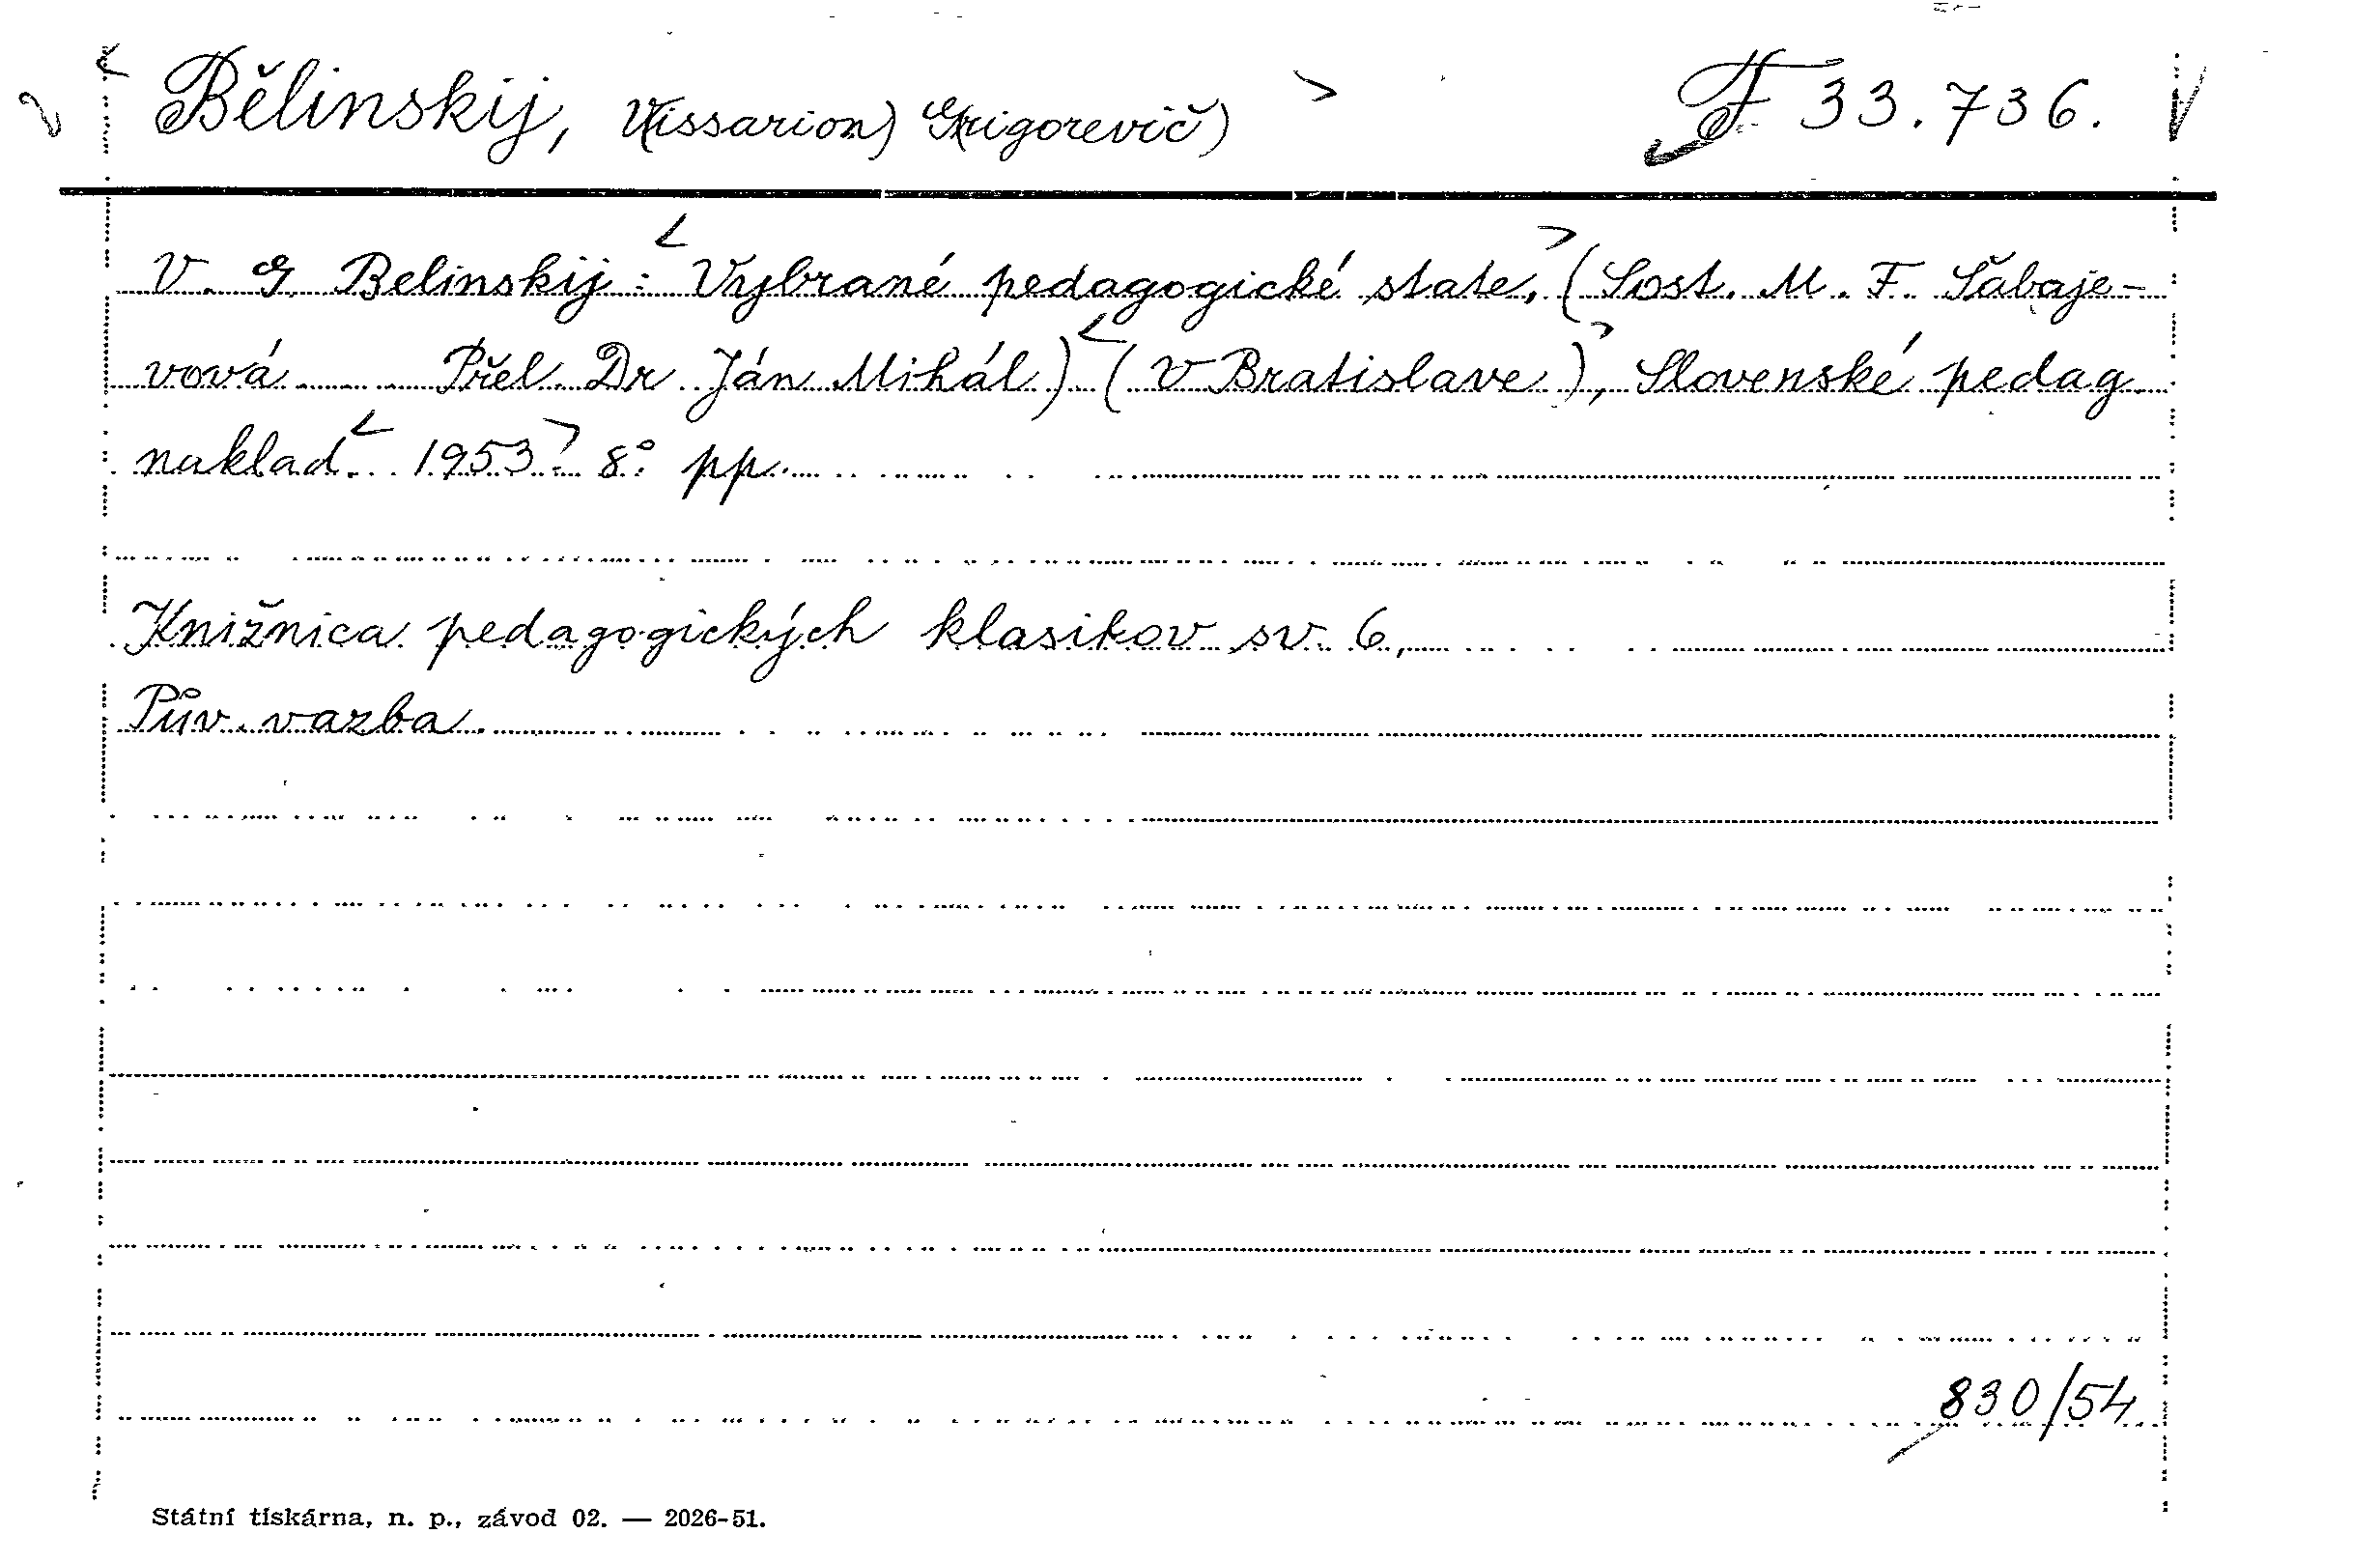 Bělinskij, V(issarion) G(rigorevič) F 33.736.
V. G. Belinskij: Vybrané pedagogické state. (Sost. M. F. Šabaje-
vová Přel. Dr Ján Mihál) (V Bratislave), Slovenské pedag.
naklad. 1953. 8° pp.
Knižnica pedagogických klasikov sv. 6.
Pův. vazba.
830/54
Státní tiskárna, n. p., závod 02. — 2026-51.